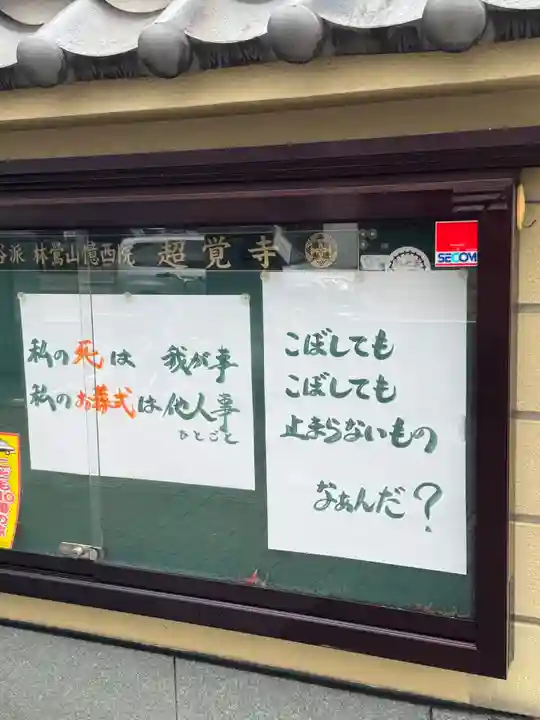 谷派 林鶯山憶西院 超覚寺
SECOM
こぼしても
こぼしても
止まらないもの
なぁんだ?
私の死は 我が事
私のお葬式は他人事
ひとごと